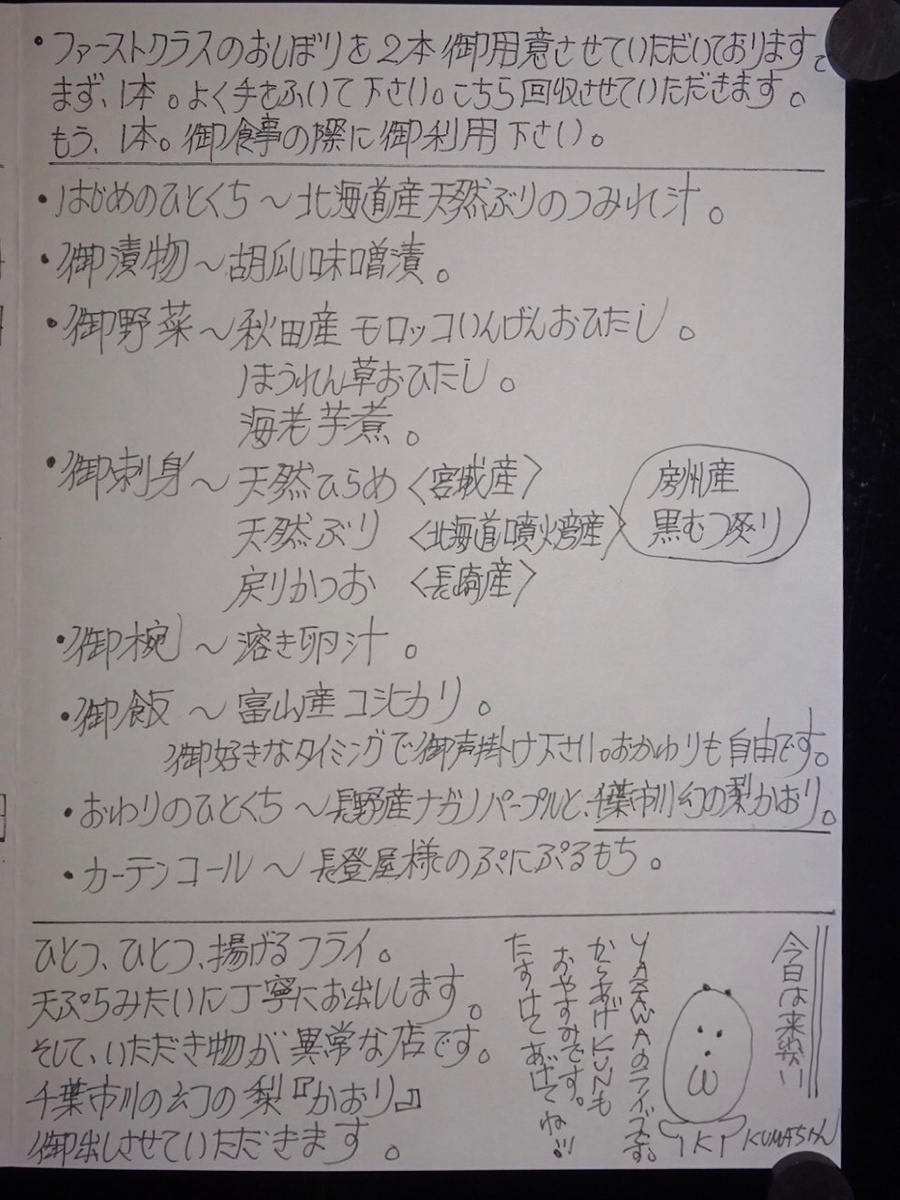 ・ファーストクラスのおしぼりを2本御用意させていただいております。
まず、1本。よく手をふいて下さい。こちら回収させていただきます。
もう、1本。御食事の際に御利用下さい。
・はじめのひとくち〜北海道産天然ぶりのつみれ汁。
・御漬物〜胡瓜味噌漬。
・御野菜〜秋田産モロッコいんげんおひたし。
ほうれん草おひたし。
海老芋煮。
・御刺身〜天然ひらめ〈宮城産〉
天然ぶり〈北海道噴火湾産〉
戻りかつお〈長崎産〉
房州産
黒むつ炙り
・御椀〜溶き卵汁。
・御飯〜富山産コシヒカリ。
御好きなタイミングで御声掛け下さい。おかわりも自由です。
・おわりのひとくち〜長野産ナガノパープルと、千葉市川幻の梨かおり。
・カーテンコール〜長登屋様のぷにぷるもち。
ひとつ、ひとつ、揚げるフライ。
天ぷらみたいに丁寧にお出しします。
そして、いただき物が異常な店です。
千葉市川の幻の梨『かおり』
御出しさせていただきます。
今日は来ない
YAZAWAのライブです。
からあげKUNも
おやすみです。
たすけてあげてね!!
KUMAちゃん